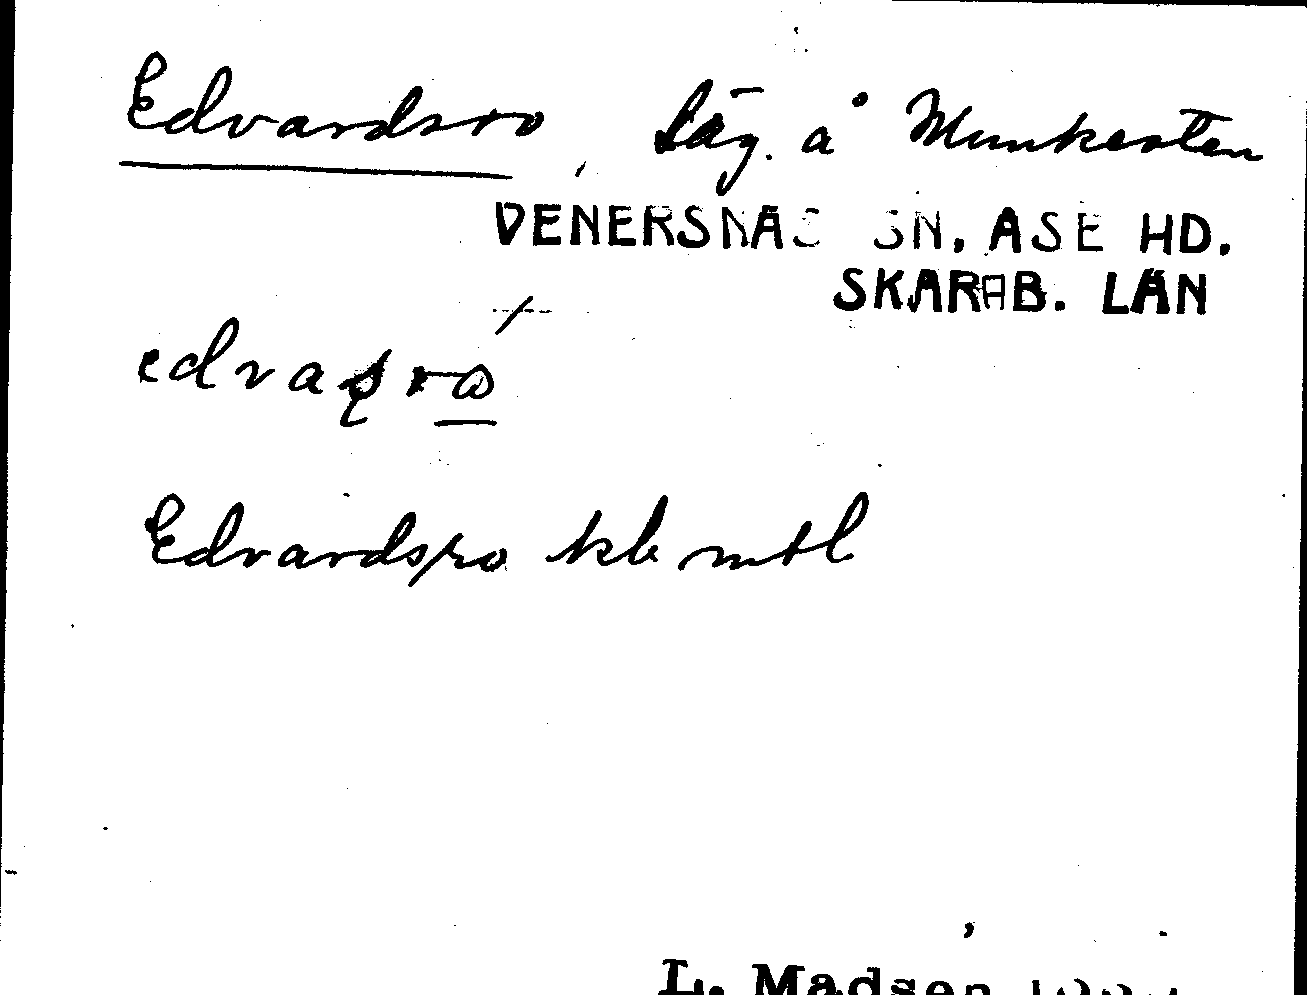 Edvardsro, läg. å Munkesten
VENERSNÄS SN. ÅSE HD.
SKARAB. LÄN
Edvardsro kb mtl
L. Madsen